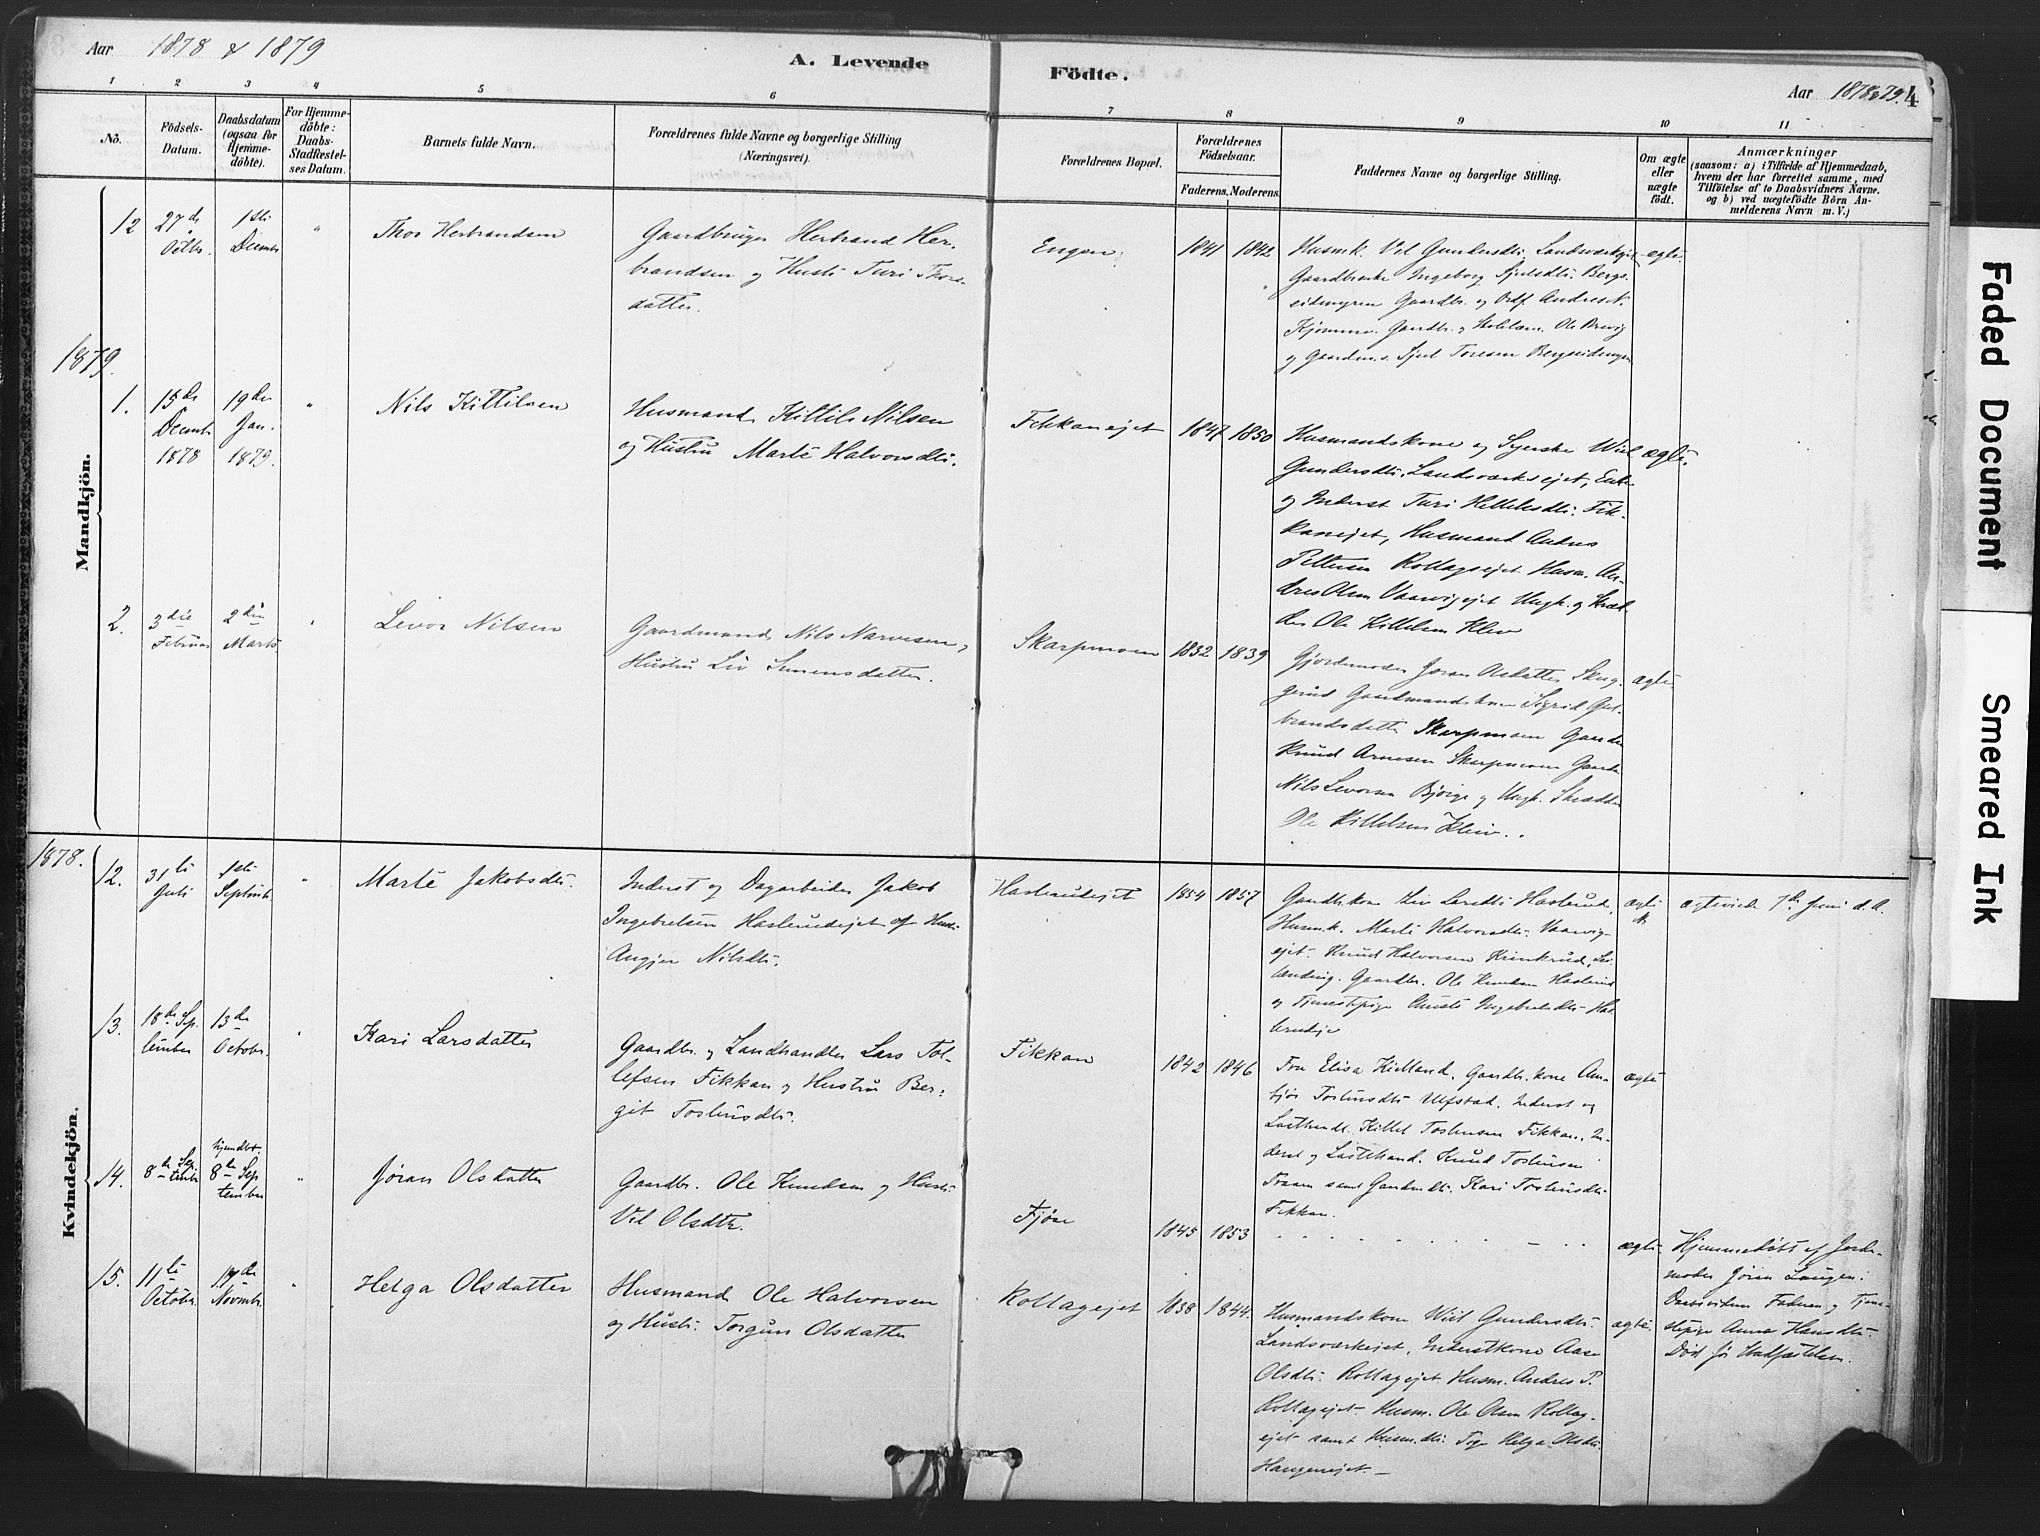 Aar 1878 & 1879
A. Levende
Födte.
Aar 1878 & 79. 4
1 2 3 4 5 6 7 8 9 10 11
No.
Födsels-
Datum.
Daabsdatum
(ogsaa for
Hjemme-
döbte).
For Hjemme-
döbte:
Daabs-
Stadfæstel-
ses Datum.
Barnets fulde Navn.
Forældrenes fulde Navne og borgerlige Stilling
(Næringsvei).
Forældrenes Bopæl.
Forældrenes
Födselsaar.
Faderens. Moderens.
Faddernes Navne og borgerlige Stilling.
Om ægte
eller
uægte
födt.
Anmærkninger
(saasom: a) i Tilfælde af Hjemmedaab,
hvem der har forrettet samme, med
Tilföielse af to Daabsvidners Navne.
og b) ved uægtefödte Börn An-
melderens Navn m. V.)
Mandkjön.
12
27de
Octbr.
1ste
Decemb.
"
Thor Herbrandsen
Gaardbruger Herbrand Her-
brandsen og Hustr. Turi Thors-
datter.
Engen.
1841
1842
Husmk. Vel Gundersdtr. Landsværkejet
Gaardbrenke Ingeborg Sjulsdtr. Bergs-
eidmyren Gaardbr. og Ordf. Andreas K.
Kjømme. Gaardbr. og Skolelær. Ole Brevig
og Gaardm.s. Sjul Toresen Bergseidmyren
ægte.
1879.
1.
15de
Decemb.
1878
19de
Jan.
1879.
"
Nils Kittilsen
Husmand Kittil Nilsen
og Hustru Marte Halvorsdtr.
Fikkanejet
1847
1850
Husmandskone og Syerske Wiel
Gundersdtr. Landsværksejet, Enke
og Inderst Turi Kittilsdtr. Fik-
kanejet, Husmand Andres
Pettersen Rollagsejet Husm. An-
dres Olsen Vaarvigejet Ungk. og Skræd-
der Ole Kittelsen Kleiv
ægte.
2.
3die
Februar
2den
Marts
"
Levor Nilsen
Gaardmand Nils Narvesen,
Hustru Liv Simensdatter.
Skarpmoen
1832
1839
Gjordemoder Joran Olsdatter Skug-
gerud Gaardmandskone Sigrid Gul-
brandsdatter Skarpmoen Gaardbr.
Knud Arnesen Skarpmoen Gaardbr.
Nils Levorsen Bjørge og Ungk. Skrædder
Ole Kittelsen Kleiv.
ægte
Kvindekjön.
1878.
12.
31te
Juli
1ste
Septemb.
"
Marte Jakobsdtr.
Inderst og Dagarbeider Jakob
Ingebretsen Hasleru​dejet og Hustr.
Angjer Nilsdtr.
Haslerudejet
1854
1857
Gaardbr. kone Liv Larsdtr. Haslerud,
Husm.k. Marte Halvorsdtr. Vaarvig-
ejet. Knud Halvorsen Krinkrud,
Gaardbr. Ole Knudsen Haslerud
og Tjenestepige Ingebretsdtr. Has-
lerudeje
ægte
ægteviede 7de Juni d. A.
13.
18de Sep-
tember
13de
October.
"
Kari Larsdatter
Gaardbr. og Landhandler Lars Tol-
lefsen Fikkan og Hustru Ber-
git Tostensdtr.
Fikkan
1842
1846
Fru Elisa Kielland. Gaardbr. kone Am-
bjør Tostensdtr. Ulfstad. Inderst og
Lasthandl. Kittel Tostensen Fikkan. In-
derst og Lasthand. Knud Tostensen
Traaen samt Gaardmdtr. Kari Tostensdtr.
Fikkan.
ægte
14.
8de Sep-
tember
hjemdbt.
8de Sep
tember
"
Jøran Olsdatter
Gaardbr. Ole Knudsen og Hustr.
Vel Olsdtr.
Fjøse
1845
1853
ægte
Hjemmedøbt af Jorde-
moder Jøran Laugen.
Daabsvidner Faderen og Tjene-
stepige Anne Hansdtr.
Død før Stadfæstelsen.
15.
11te
October.
17de
Novemb.
"
Helga Olsdatter
Husmand Ole Halvorsen
og Hustr. Torgun Olsdatter
Rollagejet
1838
1844.
Husmandskone Wiel Gundersdtr.
Landsværkejet. Inderstkone Aase
Olsdtr. Rollagejet Husm. Andres P.
Rollagejet. Husm. Ole Olsen Rollag-
ejet samt Husm.dtr. Pige Helga Olsdtr.
Haugenejet.
ægte.
Faded Document
Smeared Ink